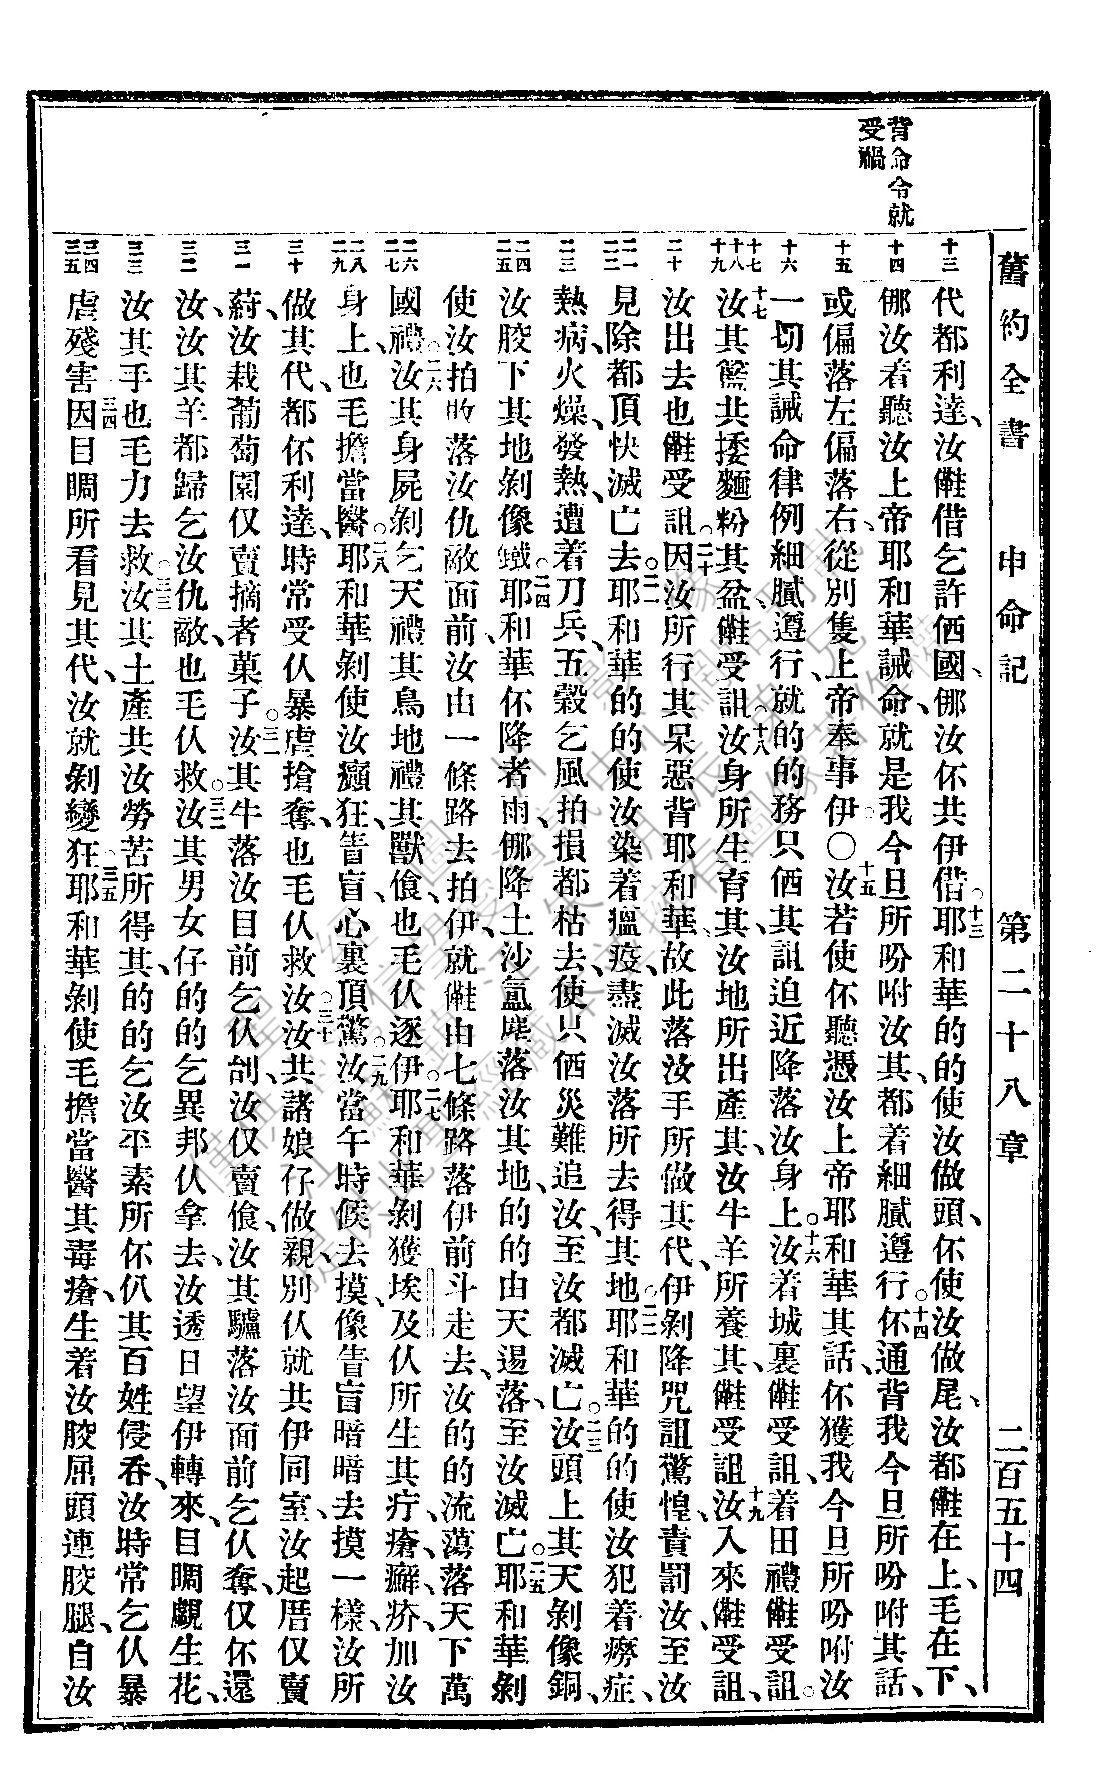 舊約全書 申命記 第二十八章 二百五十四
背命令就
受禍
十三
代都利達、汝𣍐借乞許仴國、㑚汝伓共伊借、○十三耶和華的的使汝做頭、伓使汝做尾、汝都𣍐在上、毛在下、
十四
㑚汝着聽汝上帝耶和華誡命、就是我今旦所吩咐汝其、都着細膩遵行、○十四伓通背我今旦所吩咐其話、
十五
或偏落左偏落右、從別隻上帝奉事伊○○十五汝若使伓聽憑汝上帝耶和華其話、伓獲我今旦所吩咐汝
十六
一切其誡命律例細膩遵行、就的的務只仴其詛迫近降落汝身上、○十六汝着城裏𣍐受詛、着田禮𣍐受詛。
十七 十八 十九
十七汝其籃共捼麵粉其盆、𣍐受詛、○十八汝身所生育其、汝地所出產其、汝牛羊所養其、𣍐受詛、十九汝入來𣍐受詛、
二十
汝出去也𣍐受詛、○二十因汝所行其呆惡背耶和華、故此落汝手所做其代、伊剝降咒詛驚惶責罰汝、至汝
二一 二二
見除都頂快滅亡去、○二一耶和華的的使汝染着瘟疫、盡滅汝落所去得其地、○二二耶和華的的使汝犯着癆症、
二三
熱病、火燥、發熱、遭着刀兵、五穀乞風拍損都枯去、使只仴災難追汝、至汝都滅亡、○二三汝頭上其天剝像銅、
二四 二五
汝骹下其地剝像鐵、○二四耶和華伓降者雨、㑚降土沙氳塵落汝其地、的的由天逿落、至汝滅亡、○二五耶和華剝
使汝拍敗落汝仇敵面前、汝由一條路去拍伊、就𣍐由七條路落伊前斗走去、汝的的流蕩落天下萬
二六 二七
國禮、○二六汝其身屍剝乞天禮其鳥地禮其獸飡、也毛仈逐伊、○二七耶和華剝獲埃及仈所生其疔瘡、癬疥、加汝
二八 二九
身上、也毛擔當醫、○二八耶和華剝使汝癲狂、眚盲、心裏頂驚、○二九汝當午時候、去摸像眚盲暗暗去摸一樣、汝所
三十
做其代、都伓利達、時常受仈暴虐搶奪、也毛仈救汝、○三十汝共諸娘仔做親、別仈就共伊同室、汝起厝仅賣
三一
䓫、汝栽葡萄園仅賣摘者菓子、○三一汝其牛落汝目前乞仈刣、汝仅賣飡、汝其驢落汝面前、乞仈奪、仅伓還
三二
汝、汝其羊都歸乞汝仇敵、也毛仈救、○三二汝其男女仔的的乞異邦仈拿去、汝透日望伊轉來、目睭覷生花、
三三
汝其手也毛力去救、○三三汝其土產共汝勞苦所得其、的的乞汝平素所伓仈其百姓侵吞、汝時常乞仈暴
三四 三五
虐殘害、○三四因目睭所看見其代、汝就剝變狂、○三五耶和華剝使毛擔當醫其毒瘡、生着汝骹屈頭連骹腿、自汝